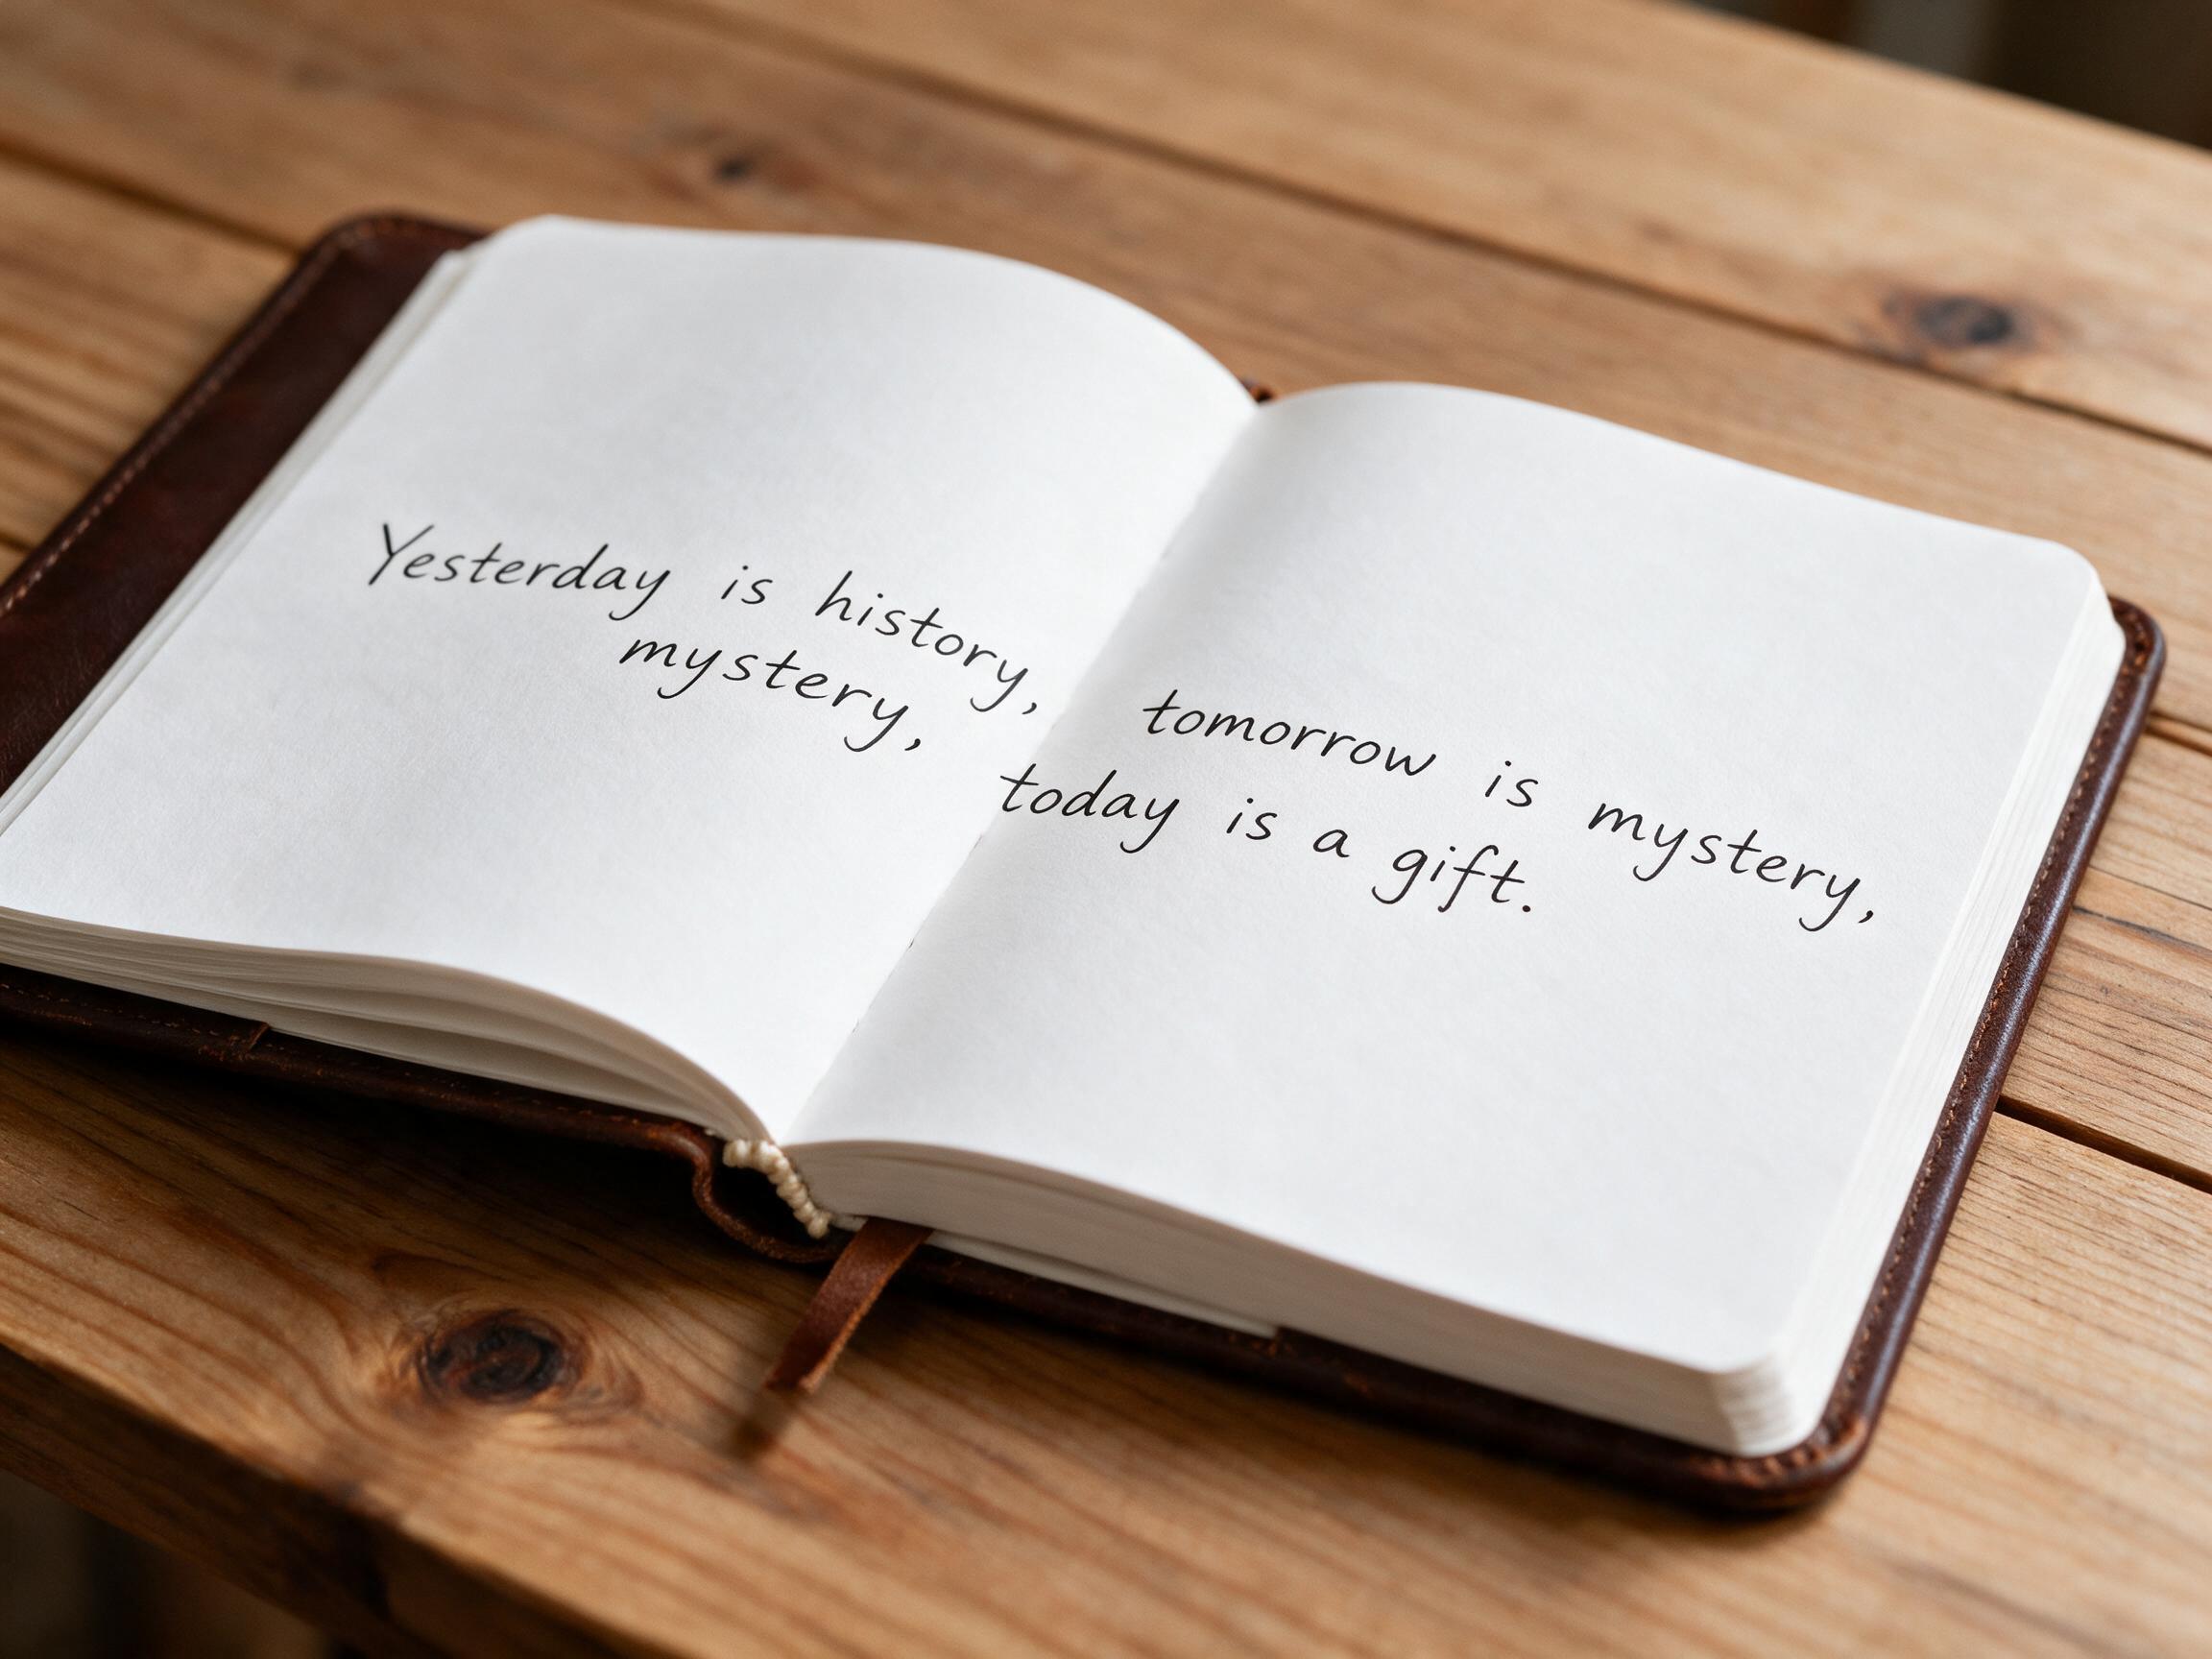 Yesterday is history, tomorrow is mystery,
mystery, today is a gift.